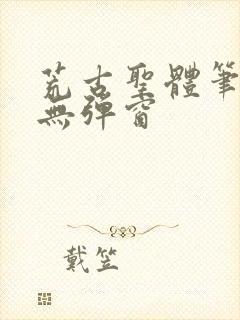 荒古聖體筆
無彈窗
戴笠